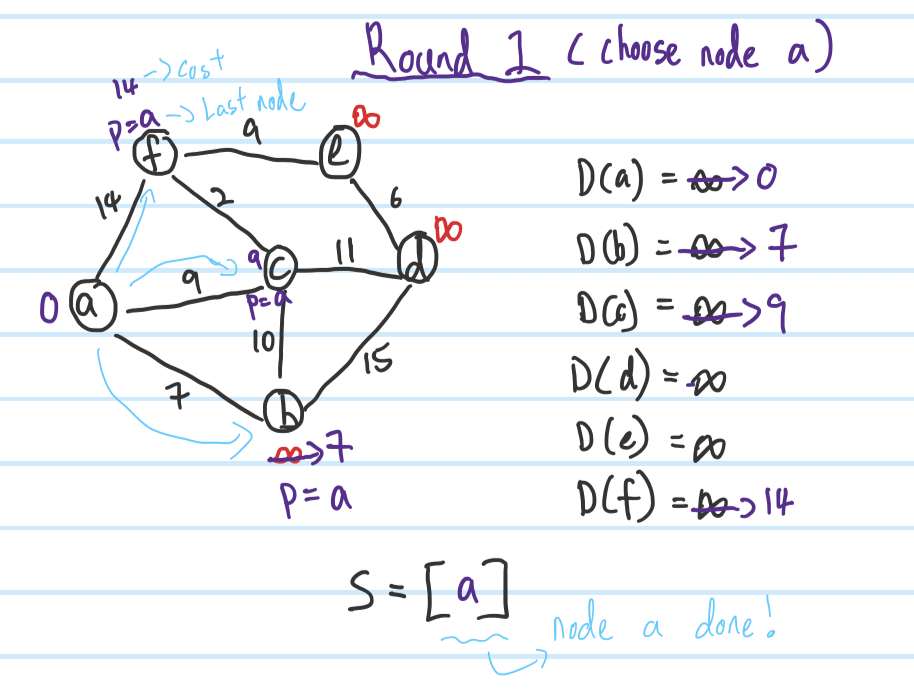 Round 1 (choose node a)
14 -> cost
p=a -> Last node
f
9
e
∞
14
2
6
d
∞
9
c
p=a
11
0
a
9
10
7
15
b
∞->7
p=a
D(a) = ∞->0
D(b) = ∞->7
D(c) = ∞->9
D(d) = ∞
D(e) = ∞
D(f) = ∞->14
S = [a]
node a done!